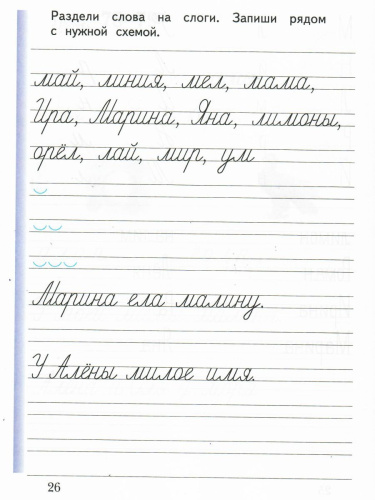 Раздели слова на слоги. Запиши рядом
с нужной схемой.
май, линия, мел, мама,
Ира, Марина, Яна, лимоны,
орёл, лай, мир, ум
Марина ела малину.
У Алёны милое имя.
26